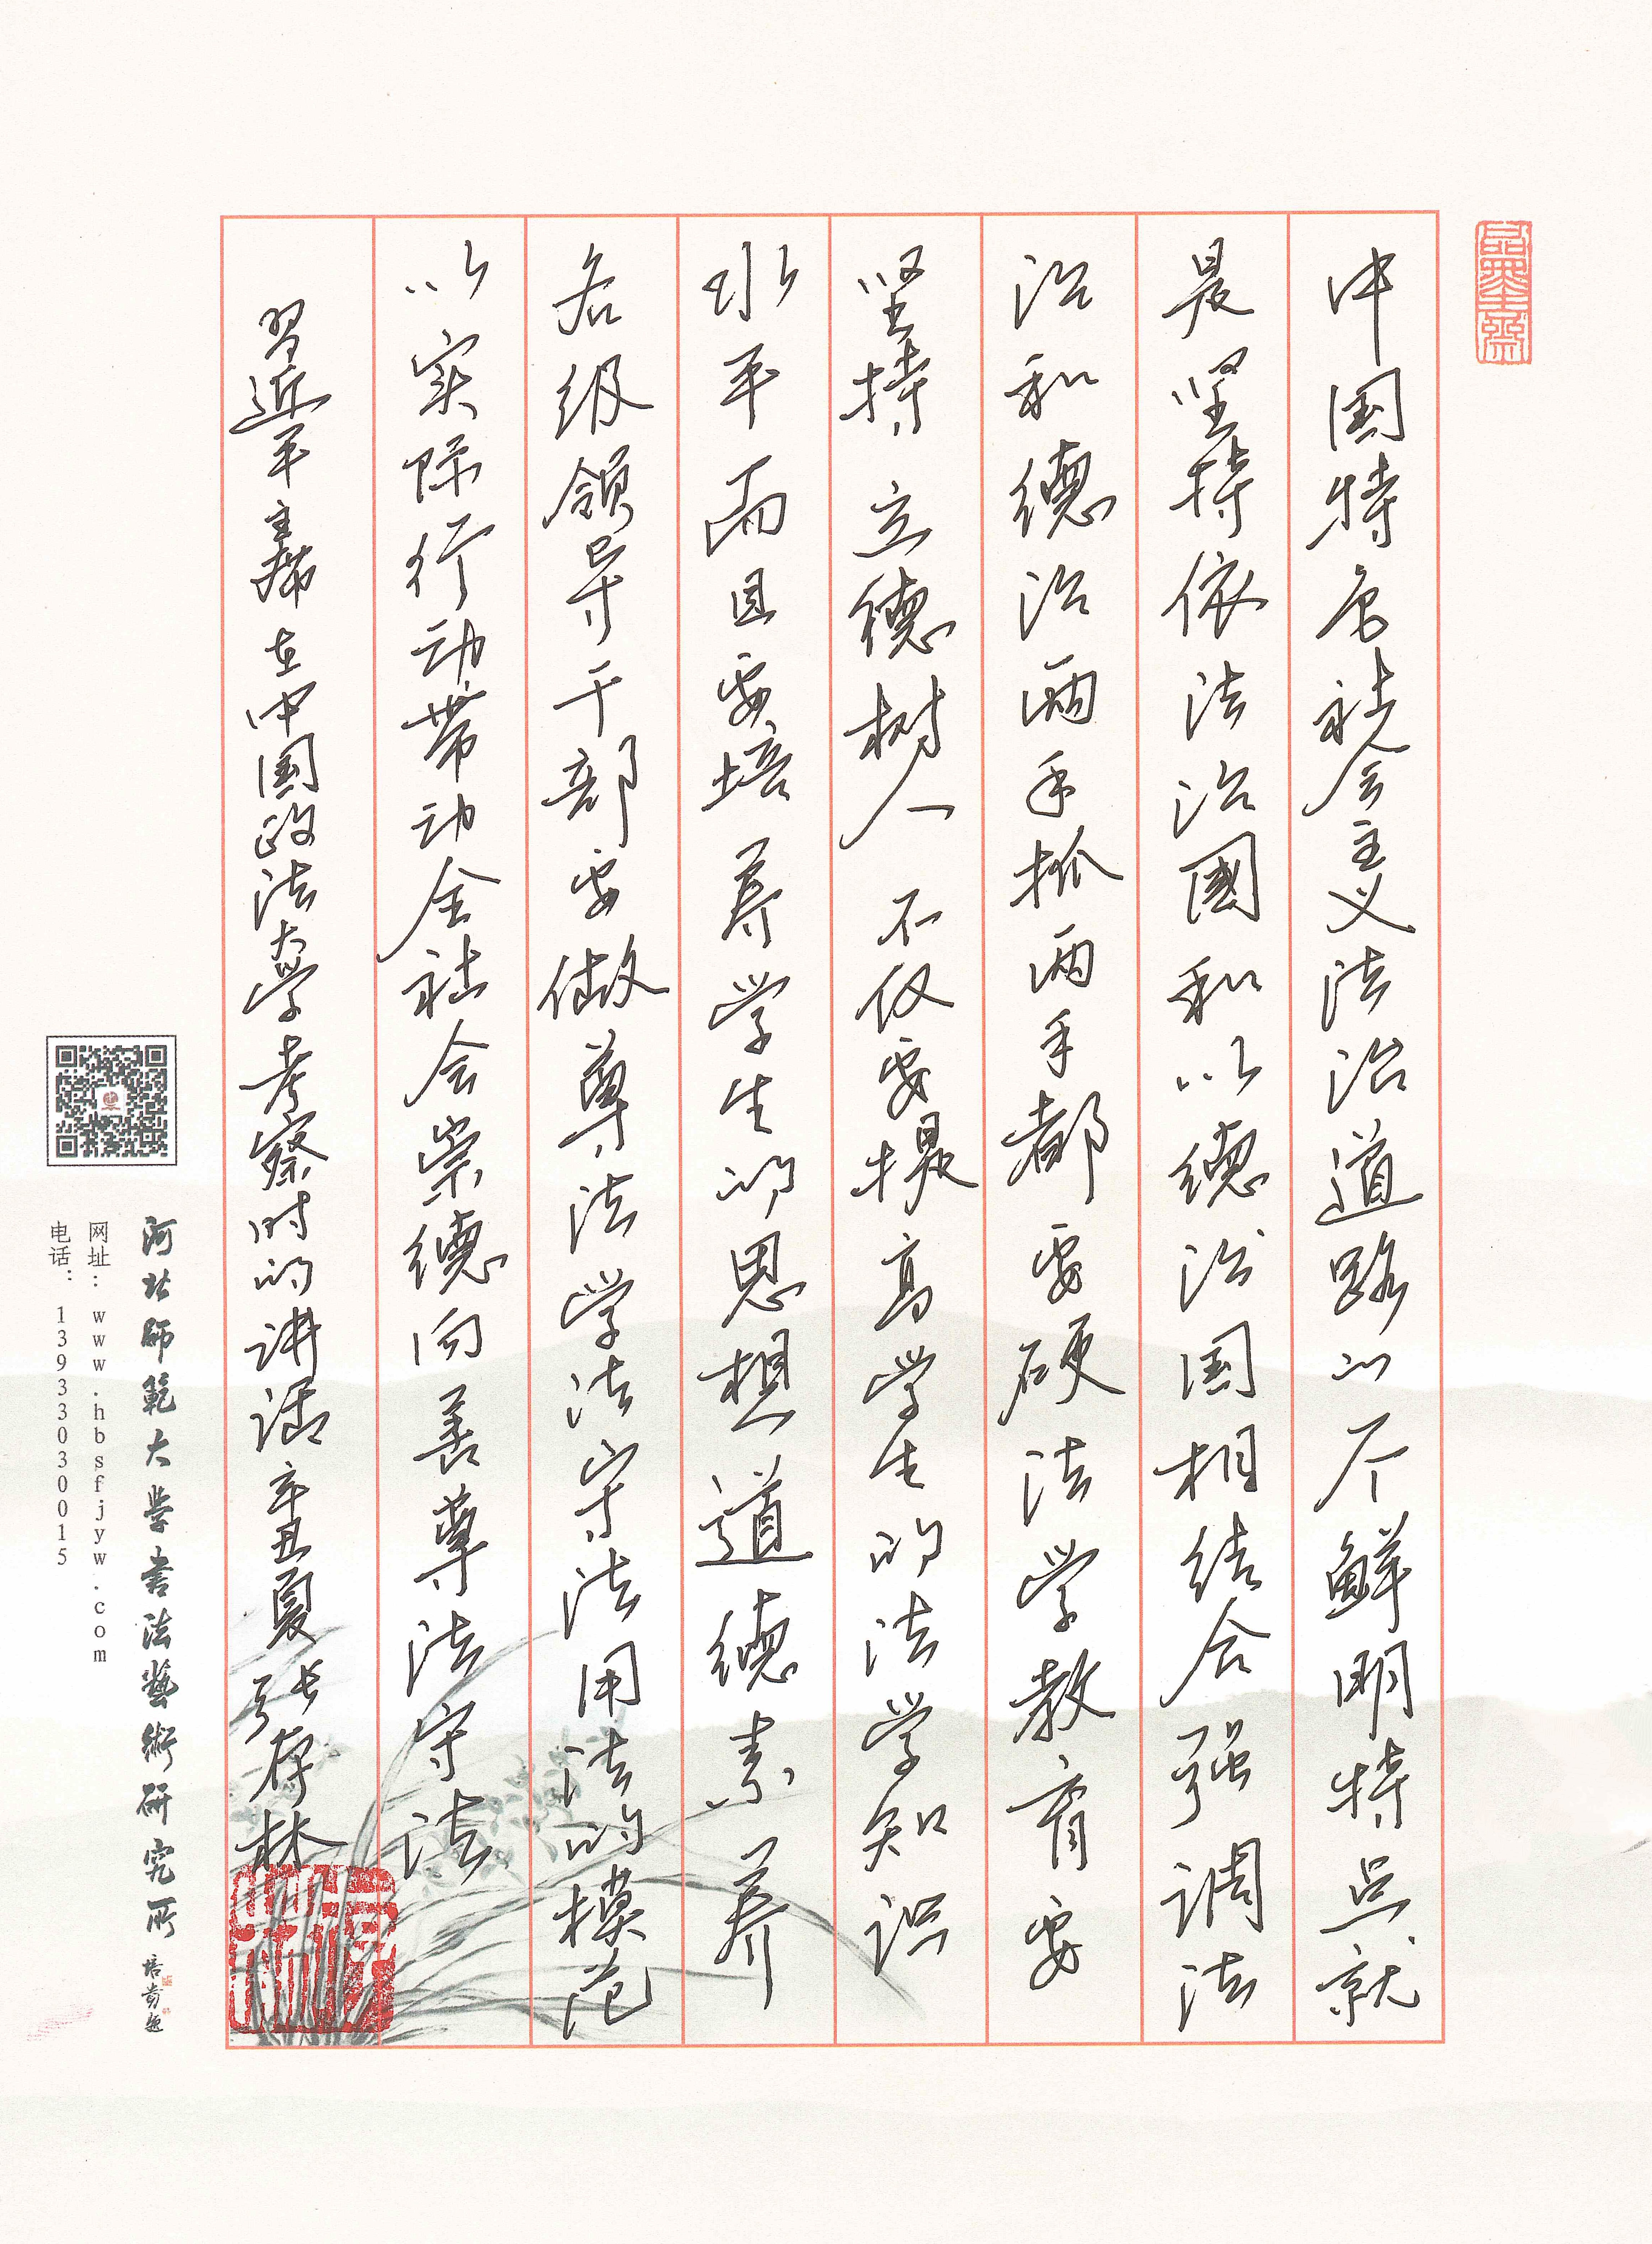 品墨斋
中国特色社会主义法治道路的一个鲜明特点就
是坚持依法治國和以德治国相结合强调法
治和德治两手抓两手都要硬法学教育要
坚持立德树人不仅要提高学生的法学知识
水平而且要培养学生的思想道德素养
各级领导干部要做尊法学法守法用法的模范
以实际行动带动全社会崇德向善尊法守法
習近平主席在中国政法大学考察时的讲话辛丑夏张存林
河北師範大學書法藝術研究所
网址：www.hbsfjyw.com
电话：13933030015